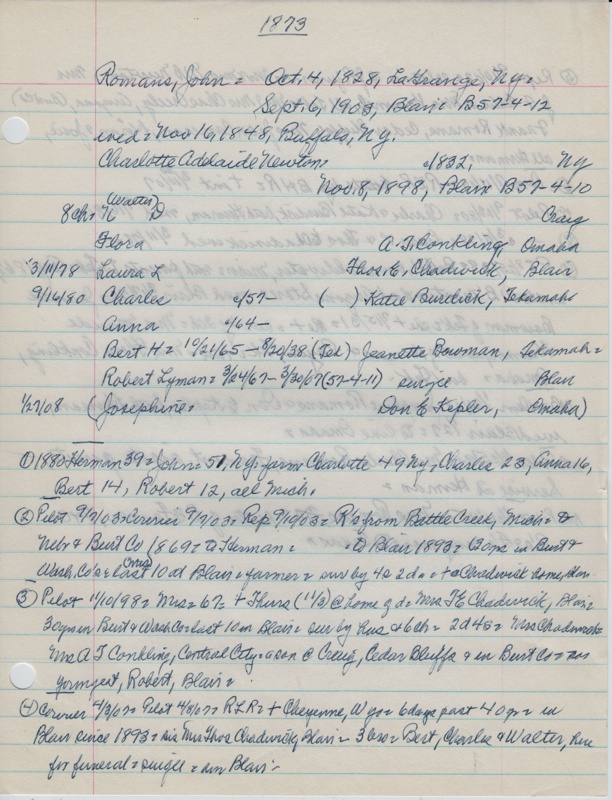 1873
Romans, John = Oct. 4, 1828, LaGrange, Ny=
Sept. 6, 1903, Blair = B57-4-12
wed = Nov 16, 1848, Buffalo, N.Y.
Charlotte Adelaide Newton= c1832, NY
Nov. 8, 1898, Blair B57-4-10
(Walter)
8 chs = D Craig
Flora A. T. Conkling, Omaha
'3/11/78 Laura L Thos. E. Chadwick, Blair
9/16/80 Charles c/57- ( ) Katie Burdick, Tekamah
Anna c/64-
Bert H = 10/21/65 - 8/20/38 (Tek) Jeanette Bowman, Tekamah=
Robert Lyman = 3/24/67 - 3/30/07 (57-4-11) single Blair
1/27/08 (Josephine= Don E Kepler, Omaha)
① 1880 Herman 39 = John = 51, NY, farm Charlotte 49 NY, Charles 23, Anna 16,
Bert 14, Robert 12, all Mich.
② Pilot 9/ /03 = Courier 9/ /03 = Rep 9/ /03 = R's from Battle Creek, Mich = to
Nebr & Burt Co (869 = to Herman = to Blair 1893 = 30 yrs in Burt &
Wash. Co's = last 10 at Blair = farmer = sur by 4s 2d = + @ Chadwick home,
③ Pilot 11/10/98 = Mrs = 67 = + Thurs (11/3) @ home of d = Mrs T E Chadwick, Blair=
30 yrs in Burt & Wash Co = last 10 in Blair = sur by hus & 6 ch = 2d 4s = Mrs Chadwick
Mrs A T Conkling, Central City = a son @ Craig, Cedar Bluffs & in Burt Co =
youngest, Robert, Blair=
④ Courier 4/ /07 = Pilot 4/ /07 = R L R = + Cheyenne, Wyo = 6 days past 40 yr = in
Blair since 1893 = sis Mrs Thos Chadwick, Blair = 3 bros = Bert, Charlie & Walter, here
for funeral = single = Blair=